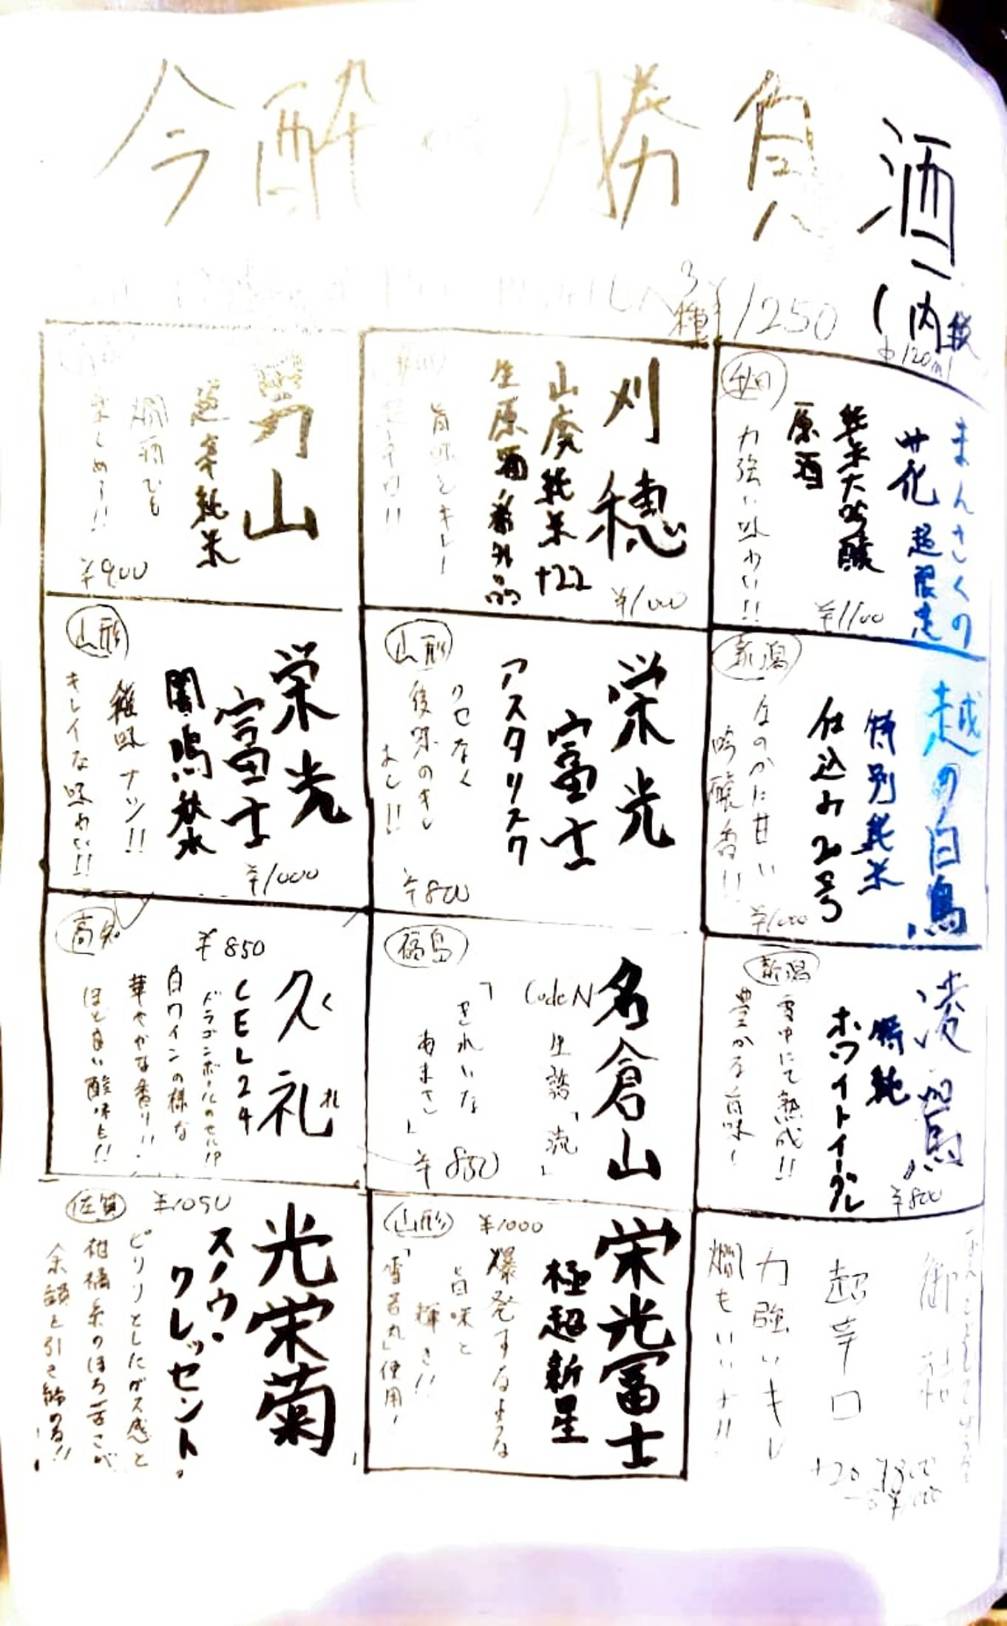 今酔 勝負酒
3種¥1250
(一内税
120ml
秋田
まんさくの
花 超限定
純米大吟醸
原酒
力強い味わい!!
¥1100
刈穂
山廃純米+22
生原酒 番外品
旨味とキレ!
¥1000
山
超辛純米
燗酒でも
楽しめる!!
¥900
新潟
越の白鳥
特別純米
仕込み20号
ほのかに甘い
吟醸香!!
¥1000
山形
栄光
富士
アスタリスク
クセなく
後味のキレ
よし!!
¥800
山形
栄光
富士
闇鳴秋水
雑味ナシ!!
キレイな味わい!!
¥1000
新潟
特純
ホワイトイーグル
雪中にて熟成!!
豊かな旨味!
¥800
福島
名倉山
CodeN
生詰「流」
「きれいな
あまさ」
¥850
高知
¥850
久礼
くれ
CEL24
ドラゴンボールのセル!?
白ワインの様な
華やかな香り!!
ほど良い酸味も!!
超辛口
力強いキレ
燗もいいす!!
+20
山形
¥1000
栄光冨士
極超新星
爆発するような
旨味と
輝き!!
「雪若丸」使用!
佐賀
¥1050
光栄菊
スノウ・
クレッセント
ピリリとしたガス感と
柑橘系のほろ苦さが
余韻を引き締める!!